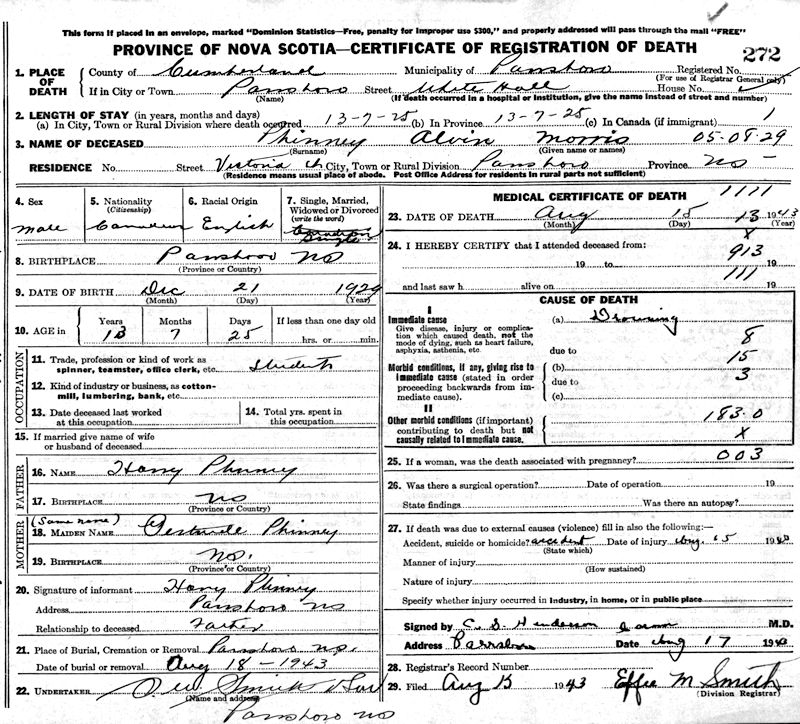 This form if placed in an envelope, marked "Dominion Statistics—Free, penalty for improper use $300," and properly addressed will pass through the mail "FREE"
PROVINCE OF NOVA SCOTIA—CERTIFICATE OF REGISTRATION OF DEATH 272
1. PLACE OF DEATH County of Cumberland Municipality of Parrsboro Registered No.
(For use of Registrar General only)
If in City or Town Parrsboro Street White Hall House No.
(Name) (If death occurred in a hospital or institution, give the name instead of street and number)
2. LENGTH OF STAY (in years, months and days)
(a) In City, Town or Rural Division where death occurred 13-7-25 (b) In Province 13-7-25 (c) In Canada (if immigrant) 1
3. NAME OF DECEASED Phinney Alvin Morris 05-08-29
(Surname) (Given name or names)
RESIDENCE No. Street Victoria City, Town or Rural Division Parrsboro Province NS
(Residence means usual place of abode. Post Office Address for residents in rural parts not sufficient)
4. Sex Male
5. Nationality (Citizenship) Canadian
6. Racial Origin English
7. Single, Married, Widowed or Divorced (write the word) Single
8. BIRTHPLACE Parrsboro NS
(Province or Country)
9. DATE OF BIRTH Dec 21 1929
(Month) (Day) (Year)
10. AGE in Years 13 Months 7 Days 25 If less than one day old hrs. or min.
OCCUPATION
11. Trade, profession or kind of work as spinner, teamster, office clerk, etc. Student
12. Kind of industry or business, as cotton-mill, lumbering, bank, etc.
13. Date deceased last worked at this occupation
14. Total yrs. spent in this occupation
15. If married give name of wife or husband of deceased
FATHER
16. NAME Harry Phinney
17. BIRTHPLACE NS
(Province or Country)
MOTHER
(Same name)
18. MAIDEN NAME Gertrude Phinney
19. BIRTHPLACE NS.
(Province or Country)
20. Signature of informant Harry Phinney
Address Parrsboro NS
Relationship to deceased Father
21. Place of Burial, Cremation or Removal Parrsboro N.S.
Date of burial or removal Aug 18-1943
22. UNDERTAKER Smith & Son
(Name and address)
Parrsboro NS
MEDICAL CERTIFICATE OF DEATH 1111
23. DATE OF DEATH Aug 15 13 1943
(Month) (Day) (Year)
X
24. I HEREBY CERTIFY that I attended deceased from:
913
19 to 19
111
and last saw h alive on 19
CAUSE OF DEATH
I
Immediate cause (a) Drowning
Give disease, injury or complication which caused death, not the mode of dying, such as heart failure, asphyxia, asthenia, etc.
8
due to
15
Morbid conditions, if any, giving rise to immediate cause (stated in order proceeding backwards from immediate cause). (b)
3
due to
(c)
II
Other morbid conditions (if important) contributing to death but not causally related to immediate cause.
183.0
X
25. If a woman, was the death associated with pregnancy? 003
26. Was there a surgical operation? Date of operation 19
State findings Was there an autopsy?
27. If death was due to external causes (violence) fill in also the following:—
Accident, suicide or homicide? accident Date of injury Aug. 15 1943
(State which)
Manner of injury
(How sustained)
Nature of injury
Specify whether injury occurred in industry, in home, or in public place
Signed by C. S. Henderson M.D.
Address Parrsboro Date Aug 17 1943
28. Registrar's Record Number
29. Filed Aug 1943 Effie M Smith
(Division Registrar)